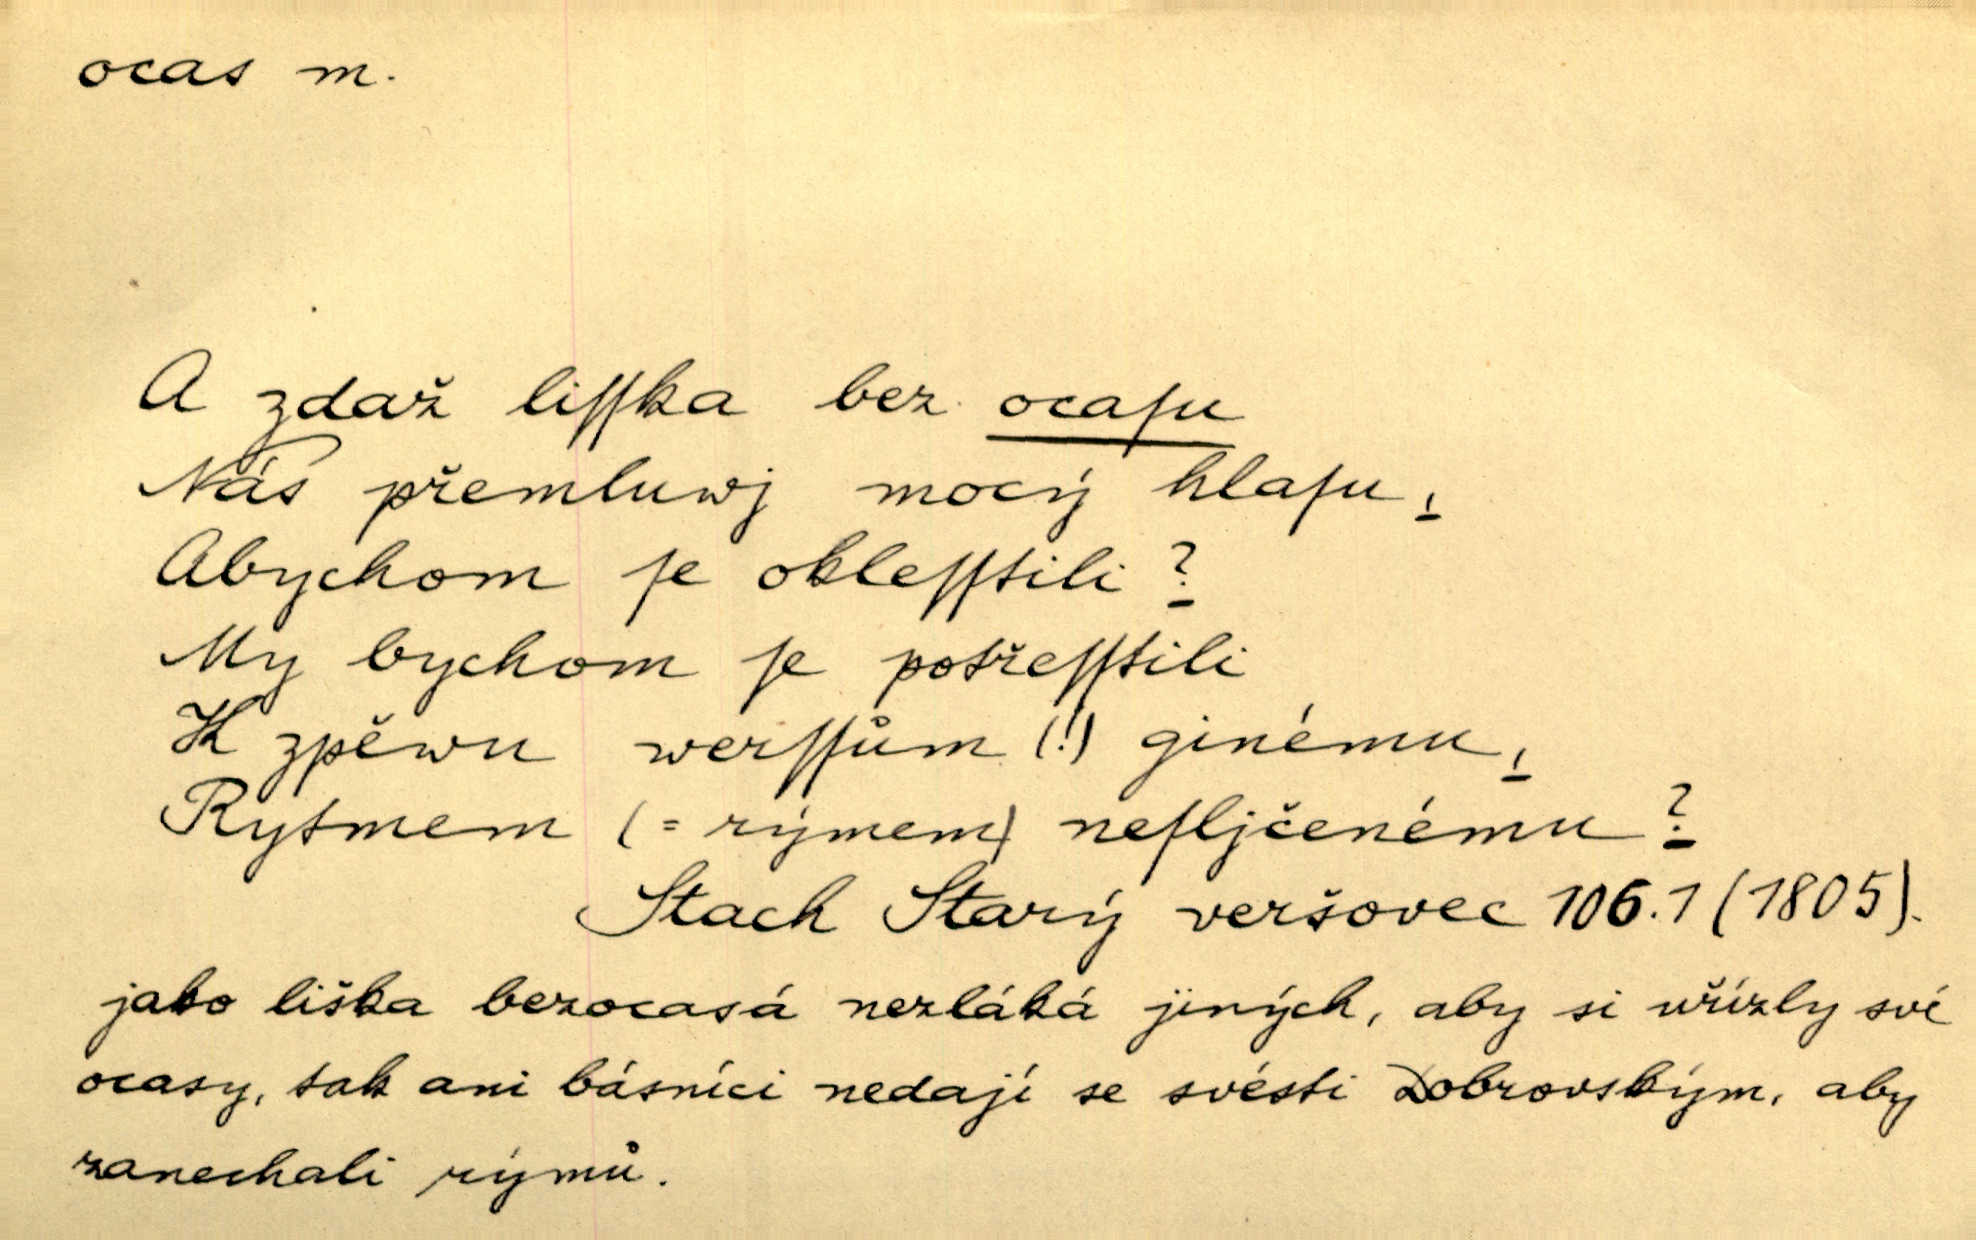 ocas m.
A zdaž liſſka bez ocaſu
Nás přemluwj mocý hlaſu,
Abychom ſe okleſſtili?
My bychom ſe potřeſſtili
K zpěwu werſſům (!) ginému,
Rytmem (= rýmem) neſljčenému?
Stach Starý veršovec 106.1 (1805).
jako liška bezocasá nezláká jiných, aby si uřízly své
ocasy, tak ani básníci nedají se svésti Dobrovským, aby
zanechali rýmů.